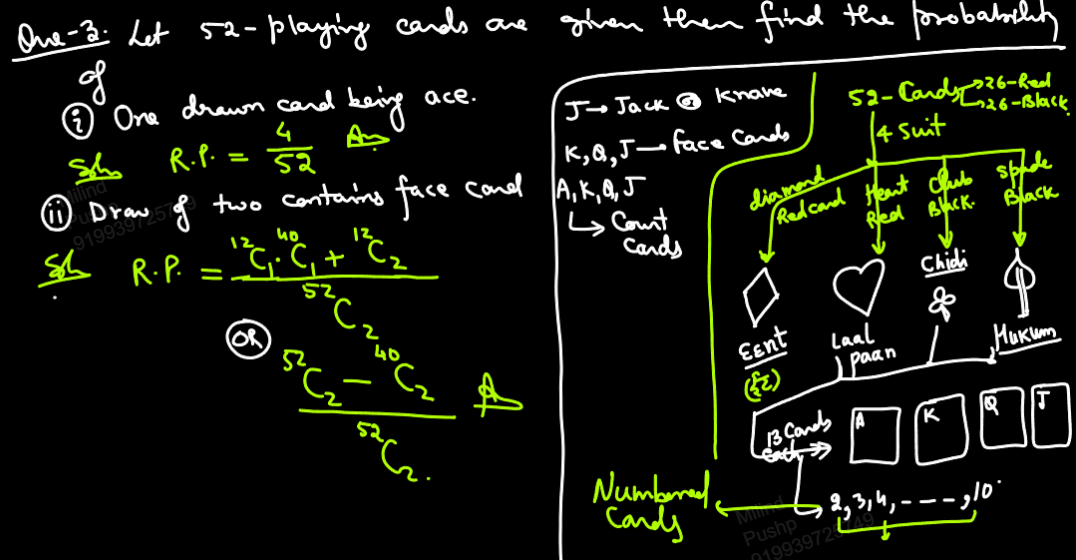 Que-3. Let 52-playing cards are given then find the probability
of
(i) One drawn card being ace.
Soln R.P. = 4/52 Ans
(ii) Draw of two contains face card
Soln R.P. = (¹²C₁·⁴⁰C₁ + ¹²C₂)/⁵²C₂
OR
(⁵²C₂ − ⁴⁰C₂)/⁵²C₂. A
J → Jack or Knave
K, Q, J → face Cards
A, K, Q, J
↳ Count Cards
52-Cards → 26-Red
→ 26-Black.
4 Suit
diamond Red card
Heart Red
Club Black.
Spade Black
EEnt
(ईंट)
Laal paan
Chidi
Hukum
13 Cards each
A K Q J
2, 3, 4, ----, 10
Numbered Cards
Milind
Pushp
919939725749
Milind
Pushp
919939725749